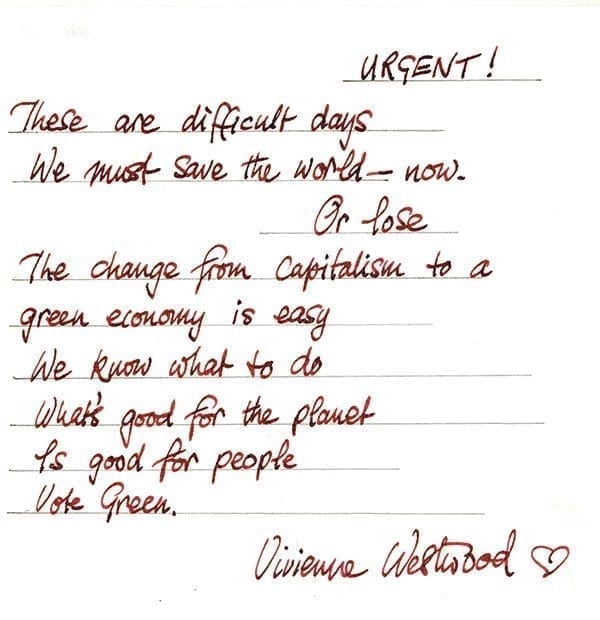 URGENT!
These are difficult days
We must save the world — now.
Or lose
The change from Capitalism to a
green economy is easy
We know what to do
What's good for the planet
Is good for people
Vote Green.
Vivienne Westwood ♡